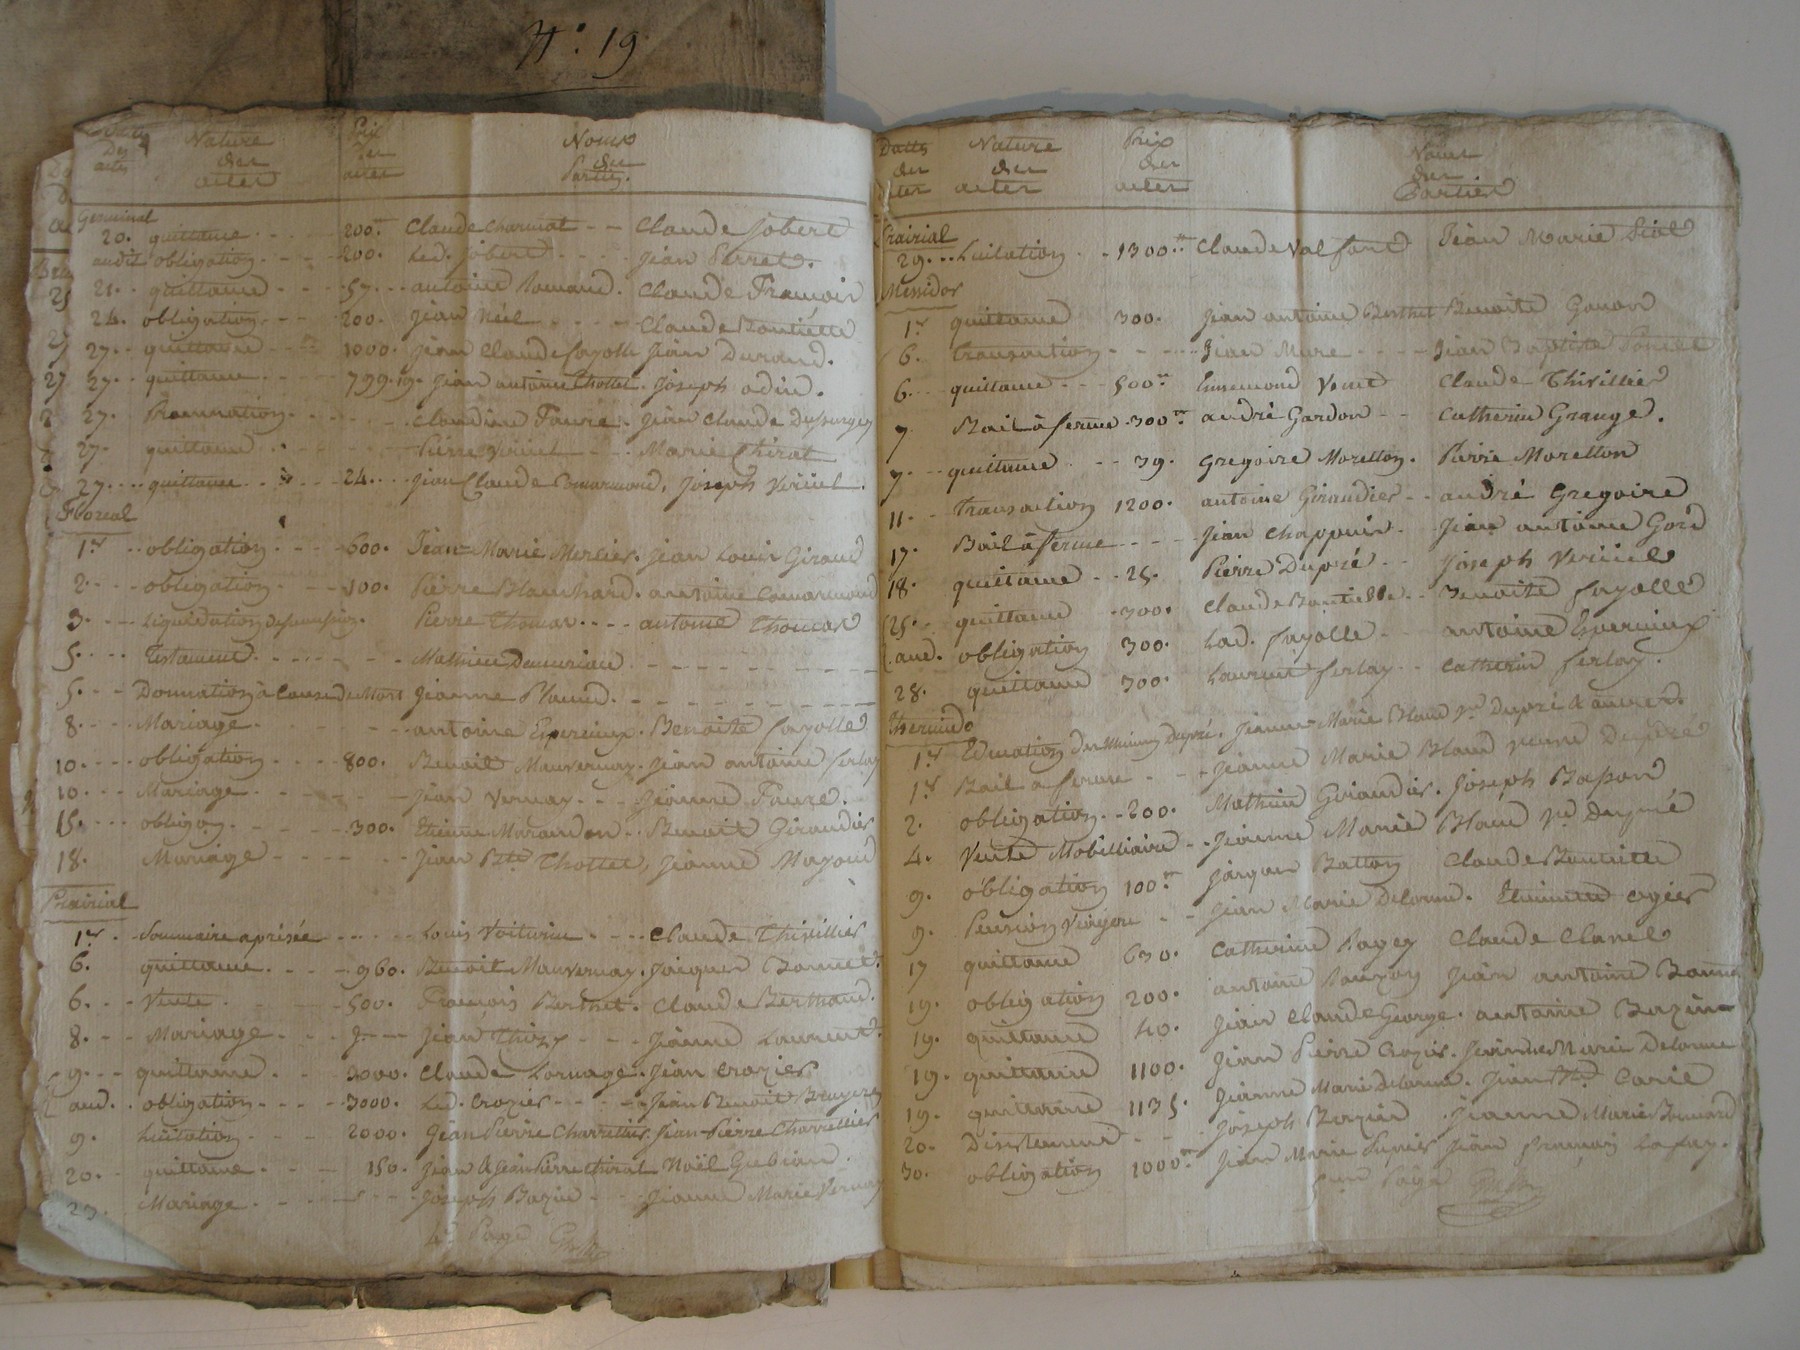 N°. 19
Dattes Nature Prix Noms
Des des des des
actes actes actes Parties.
Germinal
20. quittance 200. Claude Charmat Claude Jobert
audit obligation 200. Led. Jobert Jean Perret.
21. quittance 57. antoine Romand. Claude Francois
24. obligation 200. Jean Néel Claude
27. quittance 1000. Jean Claude fayolle Jean Durand.
27. quittance 799.19. Jean antoine Thollet. Joseph odin.
27. Claudine Faure. Jean Claude
27. quittance Pierre Marie Thirat
27. quittance 24. Jean Claude Comarmond, Joseph Vericel.
Floreal
1er obligation 600. Jean Marie Mercier. Jean Louis Giraud
2. obligation 100. Pierre Blanchard. antoine Comarmond
3. Liquidation Pierre Thomas antoine Thomas
5. Testament Mathieu
5. Donnation à Cause de Mort Jeanne
8. Mariage antoine Espercieux. Benoite fayolle
10. obligation 800. Benoit Mauvernay. Jean antoine ferlay
10. Mariage Jean Vernay Jeanne Faure.
15. obligon. 300. Etienne Benoit Giraudier
18. Mariage Jean Bte. Thollet, Jeanne
Prairial
1er Sommaire aprisée Louis Voiturin Claude Thivillier
6. quittance 960. Benoit Mauvernay. Jacques Bonnet.
6. Vente 500. Francois Berthet. Claude Berthaud.
8. Mariage Jean Jeanne Laurent.
9. quittance 3000. Claude Jean Crozier
aud. obligation 3000. Led. Crozier Jean Benoit
9. Licitation 2000. Jean Pierre Charretier. Jean Pierre Charretier
20. quittance 150. Jean & Jean Pierre thirat Noël Gubian.
23. Mariage Joseph Bazin Jeanne Marie Vernay
4e Page
Dattes Nature Prix Noms
des des des des
actes actes actes Parties
Prairial
29. Licitation 1300 Claude Valfort Jean Marie
Messidor
1er quittance 300. Jean antoine Berthet Benoite Gonon
6. transaction Jean Mure Jean Baptiste Poncet
6. quittance 500 Ennemond Claude Thivillier
7. Bail à ferme 300 andré Gardon Catherine Grange.
7. quittance 39. Gregoire Morellon. Pierre Morellon
11. transaction 1200. antoine Giraudier andré Gregoire
17. Bail à ferme Jean Chappuis Jean antoine Gord
18. quittance 25. Pierre Dupré Joseph Vericel
25. quittance 300. Claude Benoite fayolle
aud. obligation 300. Lad. fayolle antoine Espercieux
28. quittance 300. Laurent ferlay Catherin ferlay.
Thermido
1er Education des Mineurs Dupré. Jeanne Marie Blaud ve. Dupré & autres.
1er Bail a ferme Jeanne Marie Blaud veuve Dupré
2. obligation 200. Mathieu Giraudier. Joseph Basson
4. Vente Mobilliaire Jeanne Marie Blaud ve Dupré
9. obligation 100 Jacques Batton Claude
9. Pension Viagere Jean Marie Delorme. Ogier
17 quittance 630. Catherine Claude Clavel
19. obligation 200. antoine Jean antoine
19. quittance 40. Jean Claude George. antoine Bazin
19. quittance 1100. Jean Pierre Crozier. Jeanne Marie Delorme
19. quittance 1135. Jeanne Marie Delorme. Jean
20. Desistement Joseph Bazin Jeanne Marie
30. obligation 1000 Jean Marie Dupré Jean francois
5eme Page